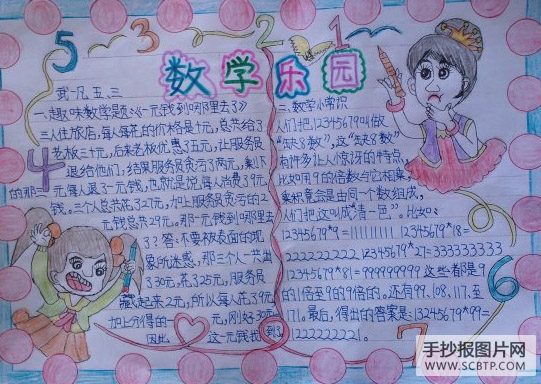 5 3 2 1
数学乐园
五、三
一、趣味数学题:《一元钱到哪里去了》
三人住旅店,每人每花的价格是十元,总共给了
老板三十元,后来老板优惠了五元,让服务员
退给他们,结果服务员贪污了两元,剩下
4
的那三元每人退了一元钱,也就是说每人消费了9元
钱。三个人总共花了27元,加上服务员贪污的2
元钱总共29元。那一元钱到哪里去
了?答:不要被表面的现
象所迷惑,那三个人一共出
了30元,花了25元,服务员
藏起来2元,所以每人花了9元
加上分得的一元,刚好30元
因此这一元钱找到了
二、数学小常识
人们把12345679叫做
“缺8数”,这“缺8数”
有许多让人惊讶的特点,
比如用9的倍数与它相乘,
乘积竟会是由同一个数组成,
人们把这叫成“清一色”。比如:
12345679*9=111111111 12345679*18=
222222222 12345679*27=333333333
12345679*81=999999999 这些都是9
的1倍至9的9倍的。还有99、108、117、至
171。最后,得出的答案是:12345679*99=
1222222221。
6
7
手抄报图片网
WWW.SCBTP.COM